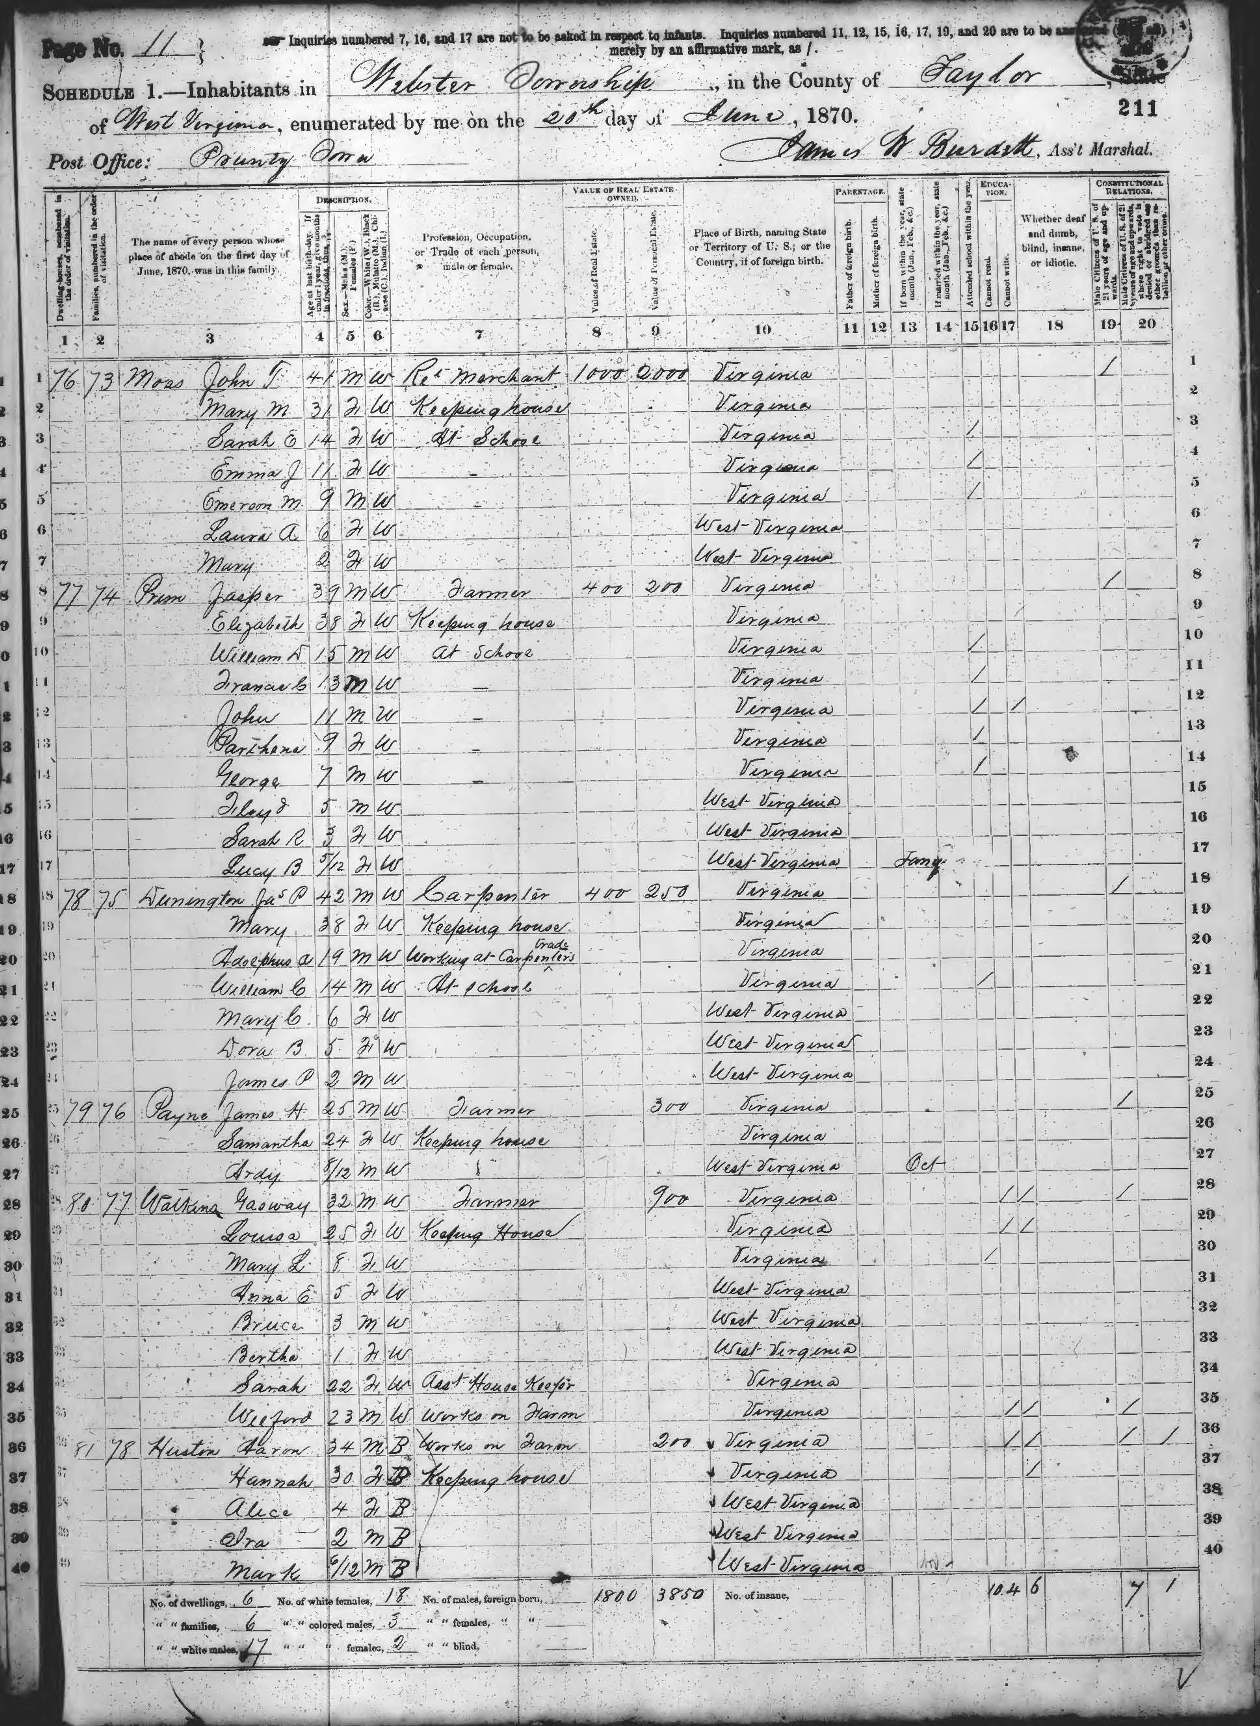 Page No. 11
☞ Inquiries numbered 7, 16, and 17 are not to be asked in respect to infants. Inquiries numbered 11, 12, 15, 16, 17, 19, and 20 are to be
merely by an affirmative mark, as /.
SCHEDULE 1.—Inhabitants in Webster Township, in the County of Taylor, State
211
of West Virginia, enumerated by me on the 20th day of June, 1870.
Post Office: Prunty Town James W Burdett, Ass't Marshal.
Dwelling-houses, numbered in the order of visitation.
Families, numbered in the order of visitation.
The name of every person whose place of abode on the first day of June, 1870, was in this family.
DESCRIPTION.
Age at last birth-day. If under 1 year, give months in fractions, thus, 3/12
Sex.—Males (M.), Females (F.)
Color.—White (W.), Black (B.), Mulatto (M.), Chinese (C.), Indian (I.)
Profession, Occupation, or Trade of each person, male or female.
VALUE OF REAL ESTATE OWNED.
Value of Real Estate.
Value of Personal Estate.
Place of Birth, naming State or Territory of U. S.; or the Country, if of foreign birth.
PARENTAGE.
Father of foreign birth.
Mother of foreign birth.
If born within the year, state month (Jan., Feb., &c.)
If married within the year, state month (Jan., Feb., &c.)
Attended school within the year.
EDUCATION.
Cannot read.
Cannot write.
Whether deaf and dumb, blind, insane, or idiotic.
CONSTITUTIONAL RELATIONS.
Male Citizens of U. S. of 21 years of age and upwards.
Male Citizens of U. S. of 21 years of age and upwards, whose right to vote is denied or abridged on other grounds than rebellion or other crime.
1 2 3 4 5 6 7 8 9 10 11 12 13 14 15 16 17 18 19 20
1 76 73 Moss John T 41 M W Ret Merchant 1000 2000 Virginia / 1
2 Mary M 31 F W Keeping house Virginia 2
3 Sarah E 14 F W At School Virginia / 3
4 Emma J 11 F W – Virginia / 4
5 Emerson M 9 M W – Virginia / 5
6 Laura A 6 F W West Virginia 6
7 Mary 2 F W West Virginia 7
8 77 74 Prim Jasper 39 M W Farmer 400 200 Virginia / 8
9 Elizabeth 38 F W Keeping house Virginia 9
10 William D 15 M W At School Virginia / 10
11 Francis C 13 M W – Virginia / 11
12 John 11 M W – Virginia / / 12
13 Parthena 9 F W – Virginia / 13
14 George 7 M W – Virginia / 14
15 Floyd 5 M W West Virginia 15
16 Sarah R 3 F W West Virginia 16
17 Lucy B 5/12 F W West Virginia Jany 17
18 78 75 Dunington Jas P 42 M W Carpenter 400 250 Virginia / 18
19 Mary 38 F W Keeping house Virginia 19
20 Adolphus A 19 M W Working at Carpenters Trade Virginia 20
21 William C 14 M W At School Virginia / 21
22 Mary C. 6 F W West Virginia 22
23 Dora B 5 F W West Virginia 23
24 James P 2 M W West Virginia 24
25 79 76 Payne James H 25 M W Farmer 300 Virginia / 25
26 Samantha 24 F W Keeping house Virginia 26
27 Ardy 8/12 M W West Virginia Oct 27
28 80 77 Watkins Gasway 32 M W Farmer 900 Virginia / / / 28
29 Louisa 25 F W Keeping House Virginia / / 29
30 Mary L 8 F W Virginia / 30
31 Anna E 5 F W West Virginia 31
32 Bruce 3 M W West Virginia 32
33 Bertha 1 F W West Virginia 33
34 Sarah 22 F W Asst House Keeper Virginia 34
35 Wilford 23 M W Works on Farm Virginia / / / 35
36 81 78 Huston Aaron 34 M B Works on Farm 200 Virginia / / / / 36
37 Hannah 30 F B Keeping house Virginia / 37
38 Alice 4 F B West Virginia 38
39 Ira 2 M B West Virginia 39
40 Mark 6/12 M B West Virginia 40
No. of dwellings, 6 No. of white females, 18 No. of males, foreign born, 1800 3850 No. of insane, 10 4 6 7 1
" " families, 6 " " colored males, 3 " " females, " "
" " white males, 17 " " " females, 2 " " blind,